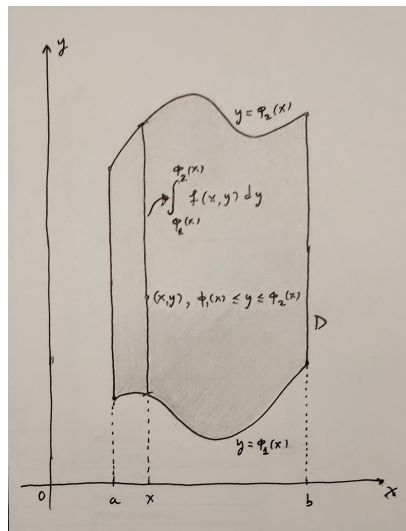 y
y = φ₂(x)
φ₂(x)
∫ f(x,y) dy
φ₁(x)
(x,y), φ₁(x) ≤ y ≤ φ₂(x)
D
y = φ₁(x)
0 a x b x